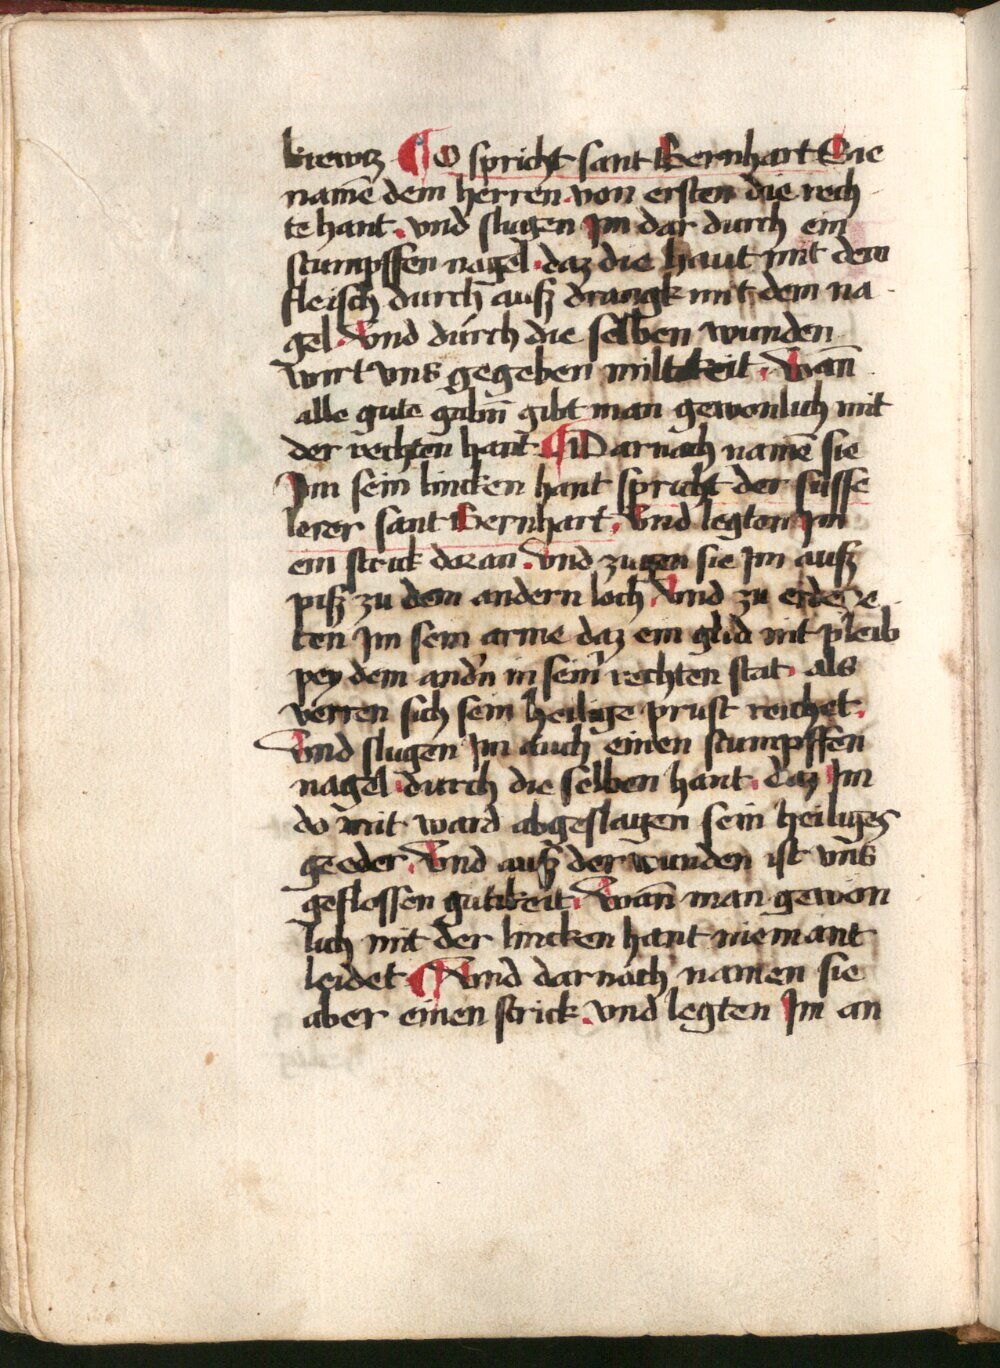 krewtz ¶ O spricht sant Bernhart Sie
namē dem herren von ersten die rech
te hant. vnd slugen Jm dar durch ein
stumpffen nagel. daz die haut mit dem
fleisch durch auß drangk mit dem na
gel. Vnd durch die selben wunden
wirt vns gegeben miltikeit. Wan̄
alle gute gabn̄ gibt man gewonlich mit
der rechten hant ¶ Darnach namē sie
Jm sein lincken hant spricht der susse
lerer sant Bernhart. Vnd legten Jm
ein strick daran. Vnd zugen sie Jm auß
piß zu dem andern loch. Vnd zu erdene
ten Jm sein arme daz ein glid nit pleib
pey dem and'n in sein' rechten stat. als
verren sich sein heilige prust reichet.
Vnd slugen Jm auch einen stumpffen
nagel durch die selben hant. daz Jm
do mit ward abgeslagen sein heiliges
geeder. Vnd auß der wunden ist vns
geflossen gutikeit. Wan̄ man gewon
lich mit der lincken hant niemant
leidet ¶ Vnd darnach namen sie
aber einen strick. vnd legten Jm an